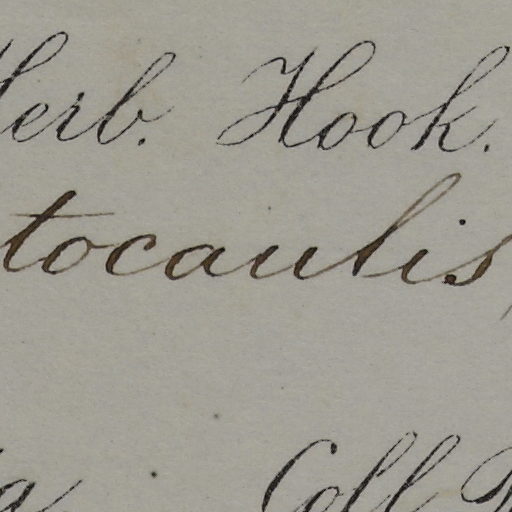 Herb. Hook.
tocaulis,
a Coll